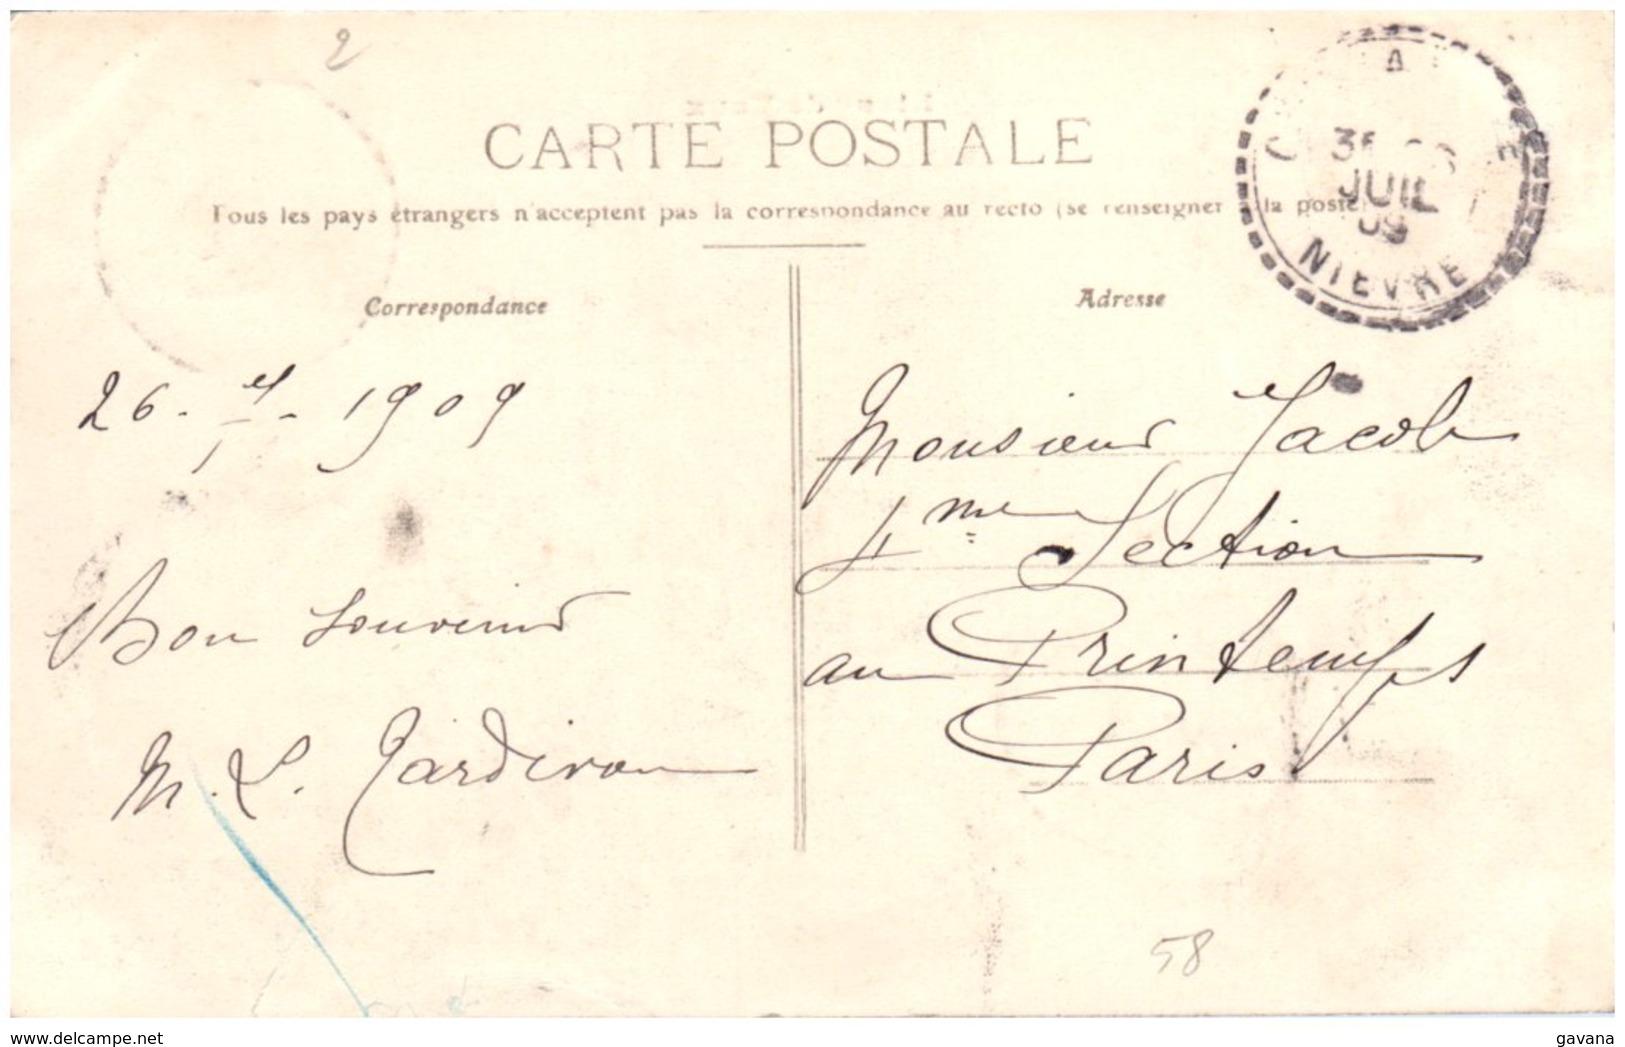 2
CARTE POSTALE
Tous les pays étrangers n'acceptent pas la correspondance au recto (se renseigner à la poste)
A
JUIL
09
NIEVRE
Correspondance
Adresse
26 - - 1909
Bon souvenir
M. L. Tardivon
Monsieur Jacob
4me Section
au Printemps
Paris
58
www.delcampe.net
gavana